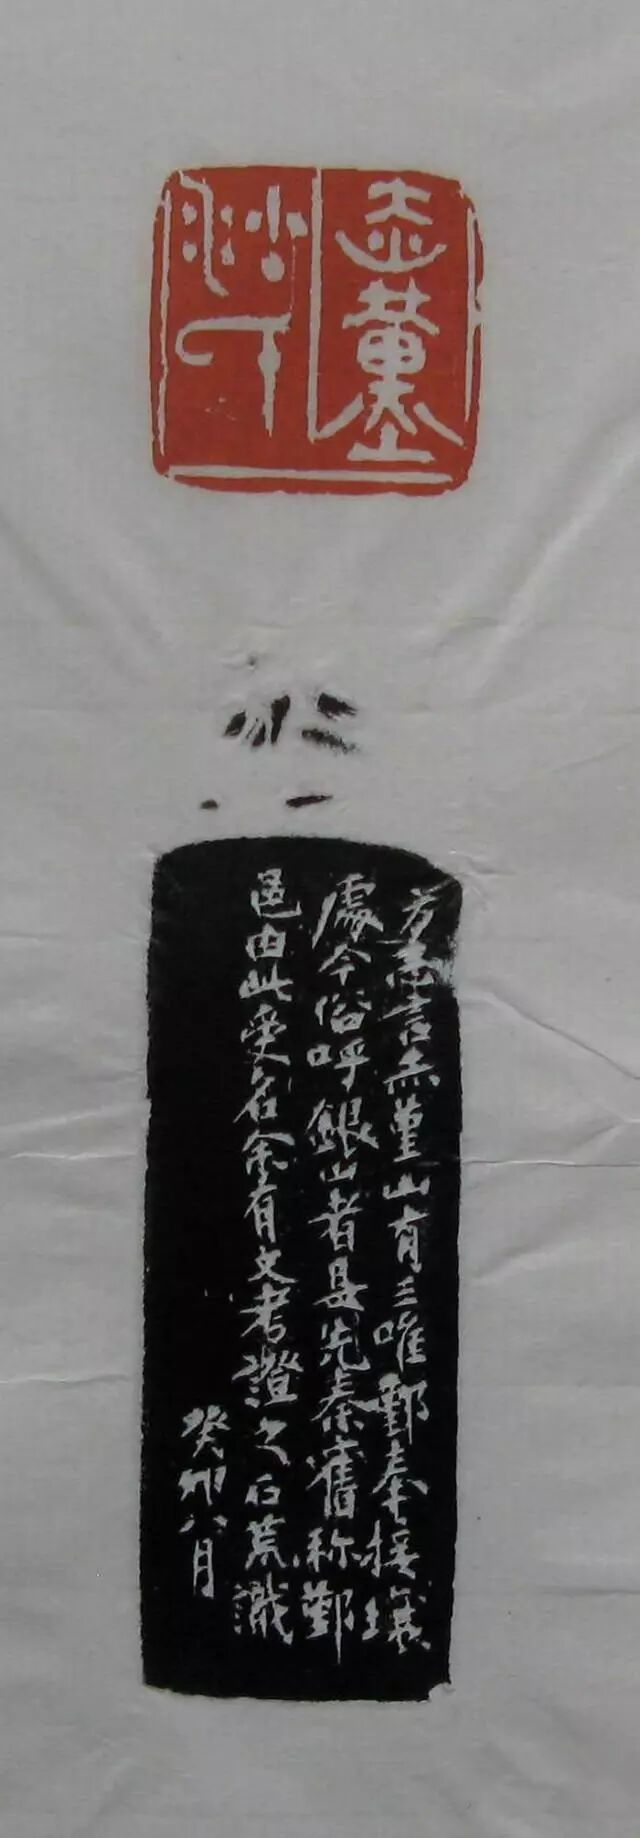 赤堇
方志言赤堇山有三唯鄞奉接壤
處今俗呼銀山者是先秦舊称鄞
邑由此受名余有文考證之石荒識
癸卯八月